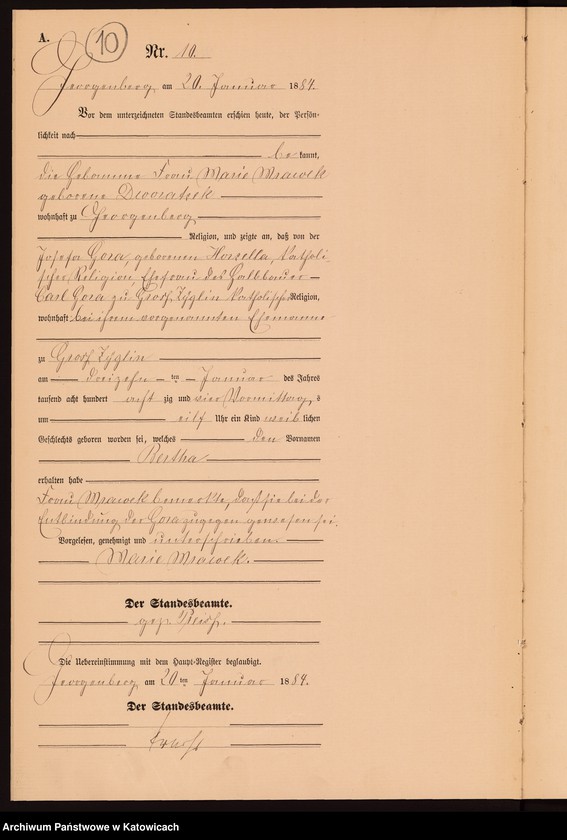 A.
10
Nr. 10.
Georgenberg, am 20. Januar 1884.
Vor dem unterzeichneten Standesbeamten erschien heute, der Persön-
lichkeit nach
be kannt,
die Hebamme Frau Marie Mrawek
geborene
wohnhaft zu Georgenberg
Religion, und zeigte an, daß von der
Josefa Gora, geborenen Katholi-
scher Religion, Ehefrau des Halbbauer
Carl Gora zu Groß Zyglin Katholischer Religion,
wohnhaft bei ihrem vorgenannten Ehemanne
zu Groß Zyglin
am dreizehn ten Januar des Jahres
tausend acht hundert acht zig und vier Vormittag s
um eilf Uhr ein Kind weib lichen
Geschlechts geboren worden sei, welches den Vornamen
Bertha
erhalten habe
Frau Mrawek bemerkte, daß sie bei der
Entbindung der Gora zugegen gewesen sei.
Vorgelesen, genehmigt und unterschrieben.
Marie Mrawek.
Der Standesbeamte.
gez.
Die Uebereinstimmung mit dem Haupt-Register beglaubigt.
Georgenberg, am 20 ten Januar 1884.
Der Standesbeamte.
Archiwum Państwowe w Katowicach